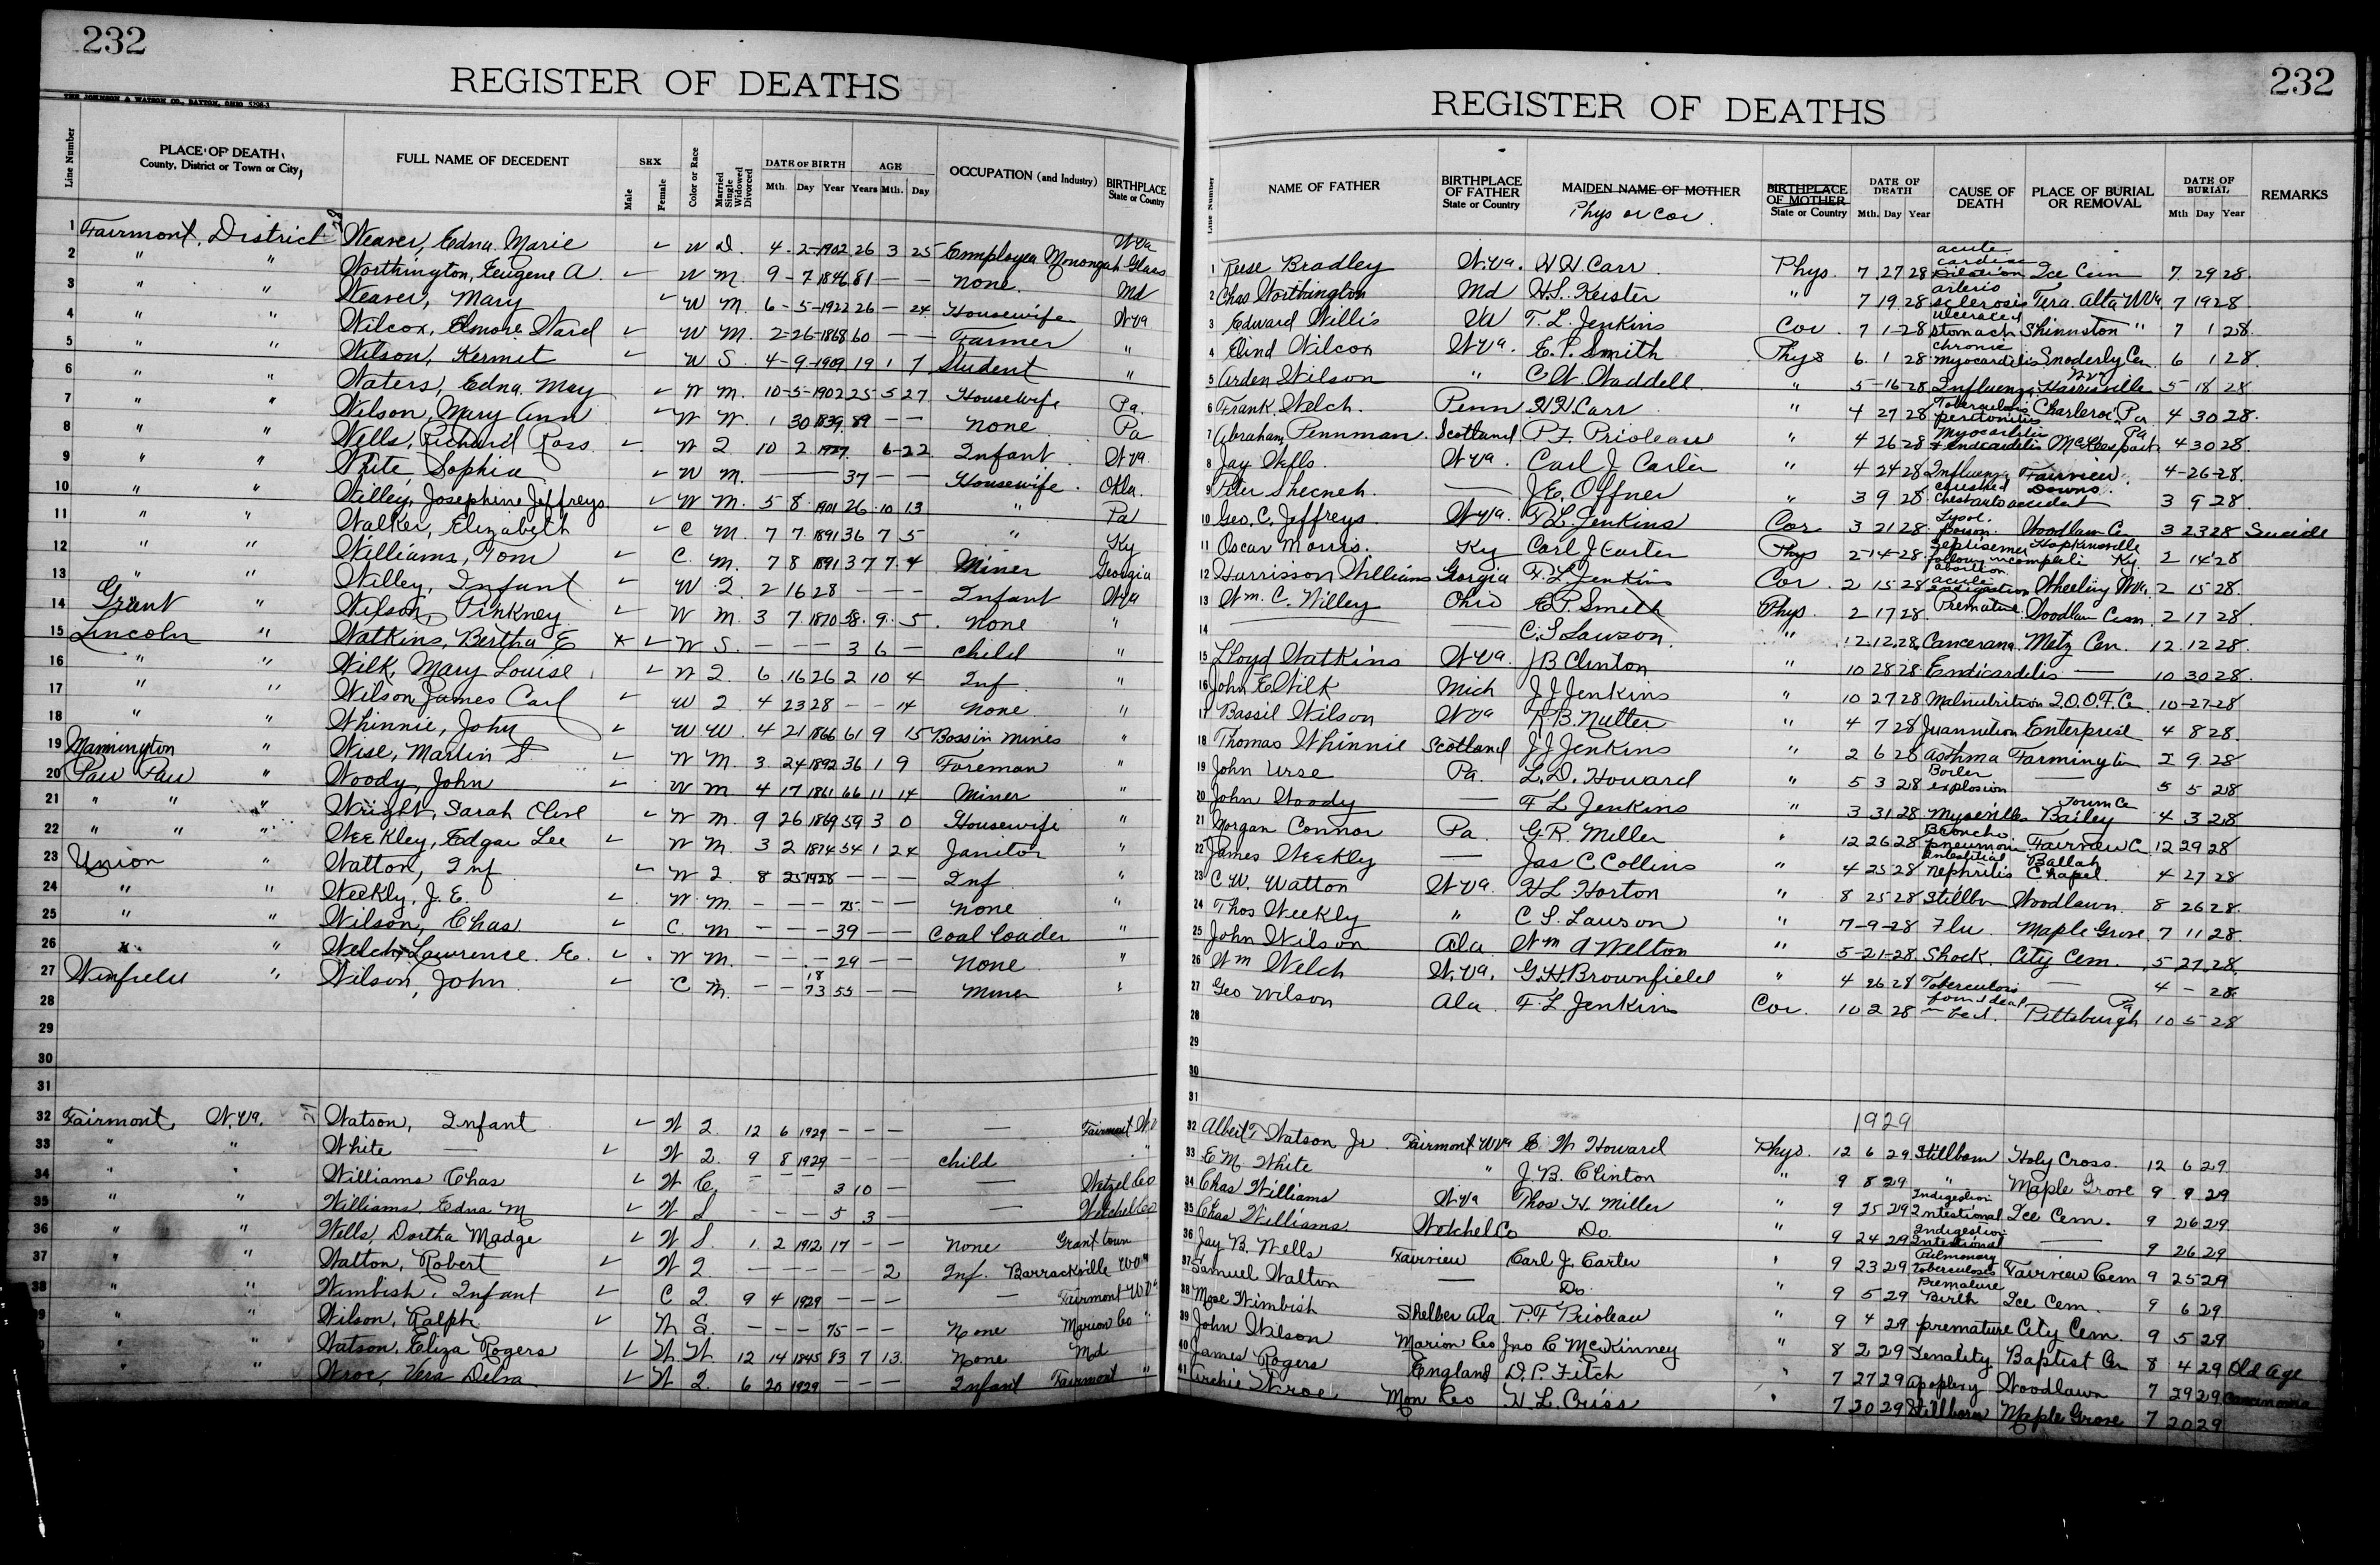 232
REGISTER OF DEATHS
THE JOHNSON & WATSON CO., DAYTON, OHIO
Line Number | PLACE OF DEATH County, District or Town or City | FULL NAME OF DECEDENT | SEX Male Female | Color or Race | Married Single Widowed Divorced | DATE OF BIRTH Mth. Day Year | AGE Years Mth. Day | OCCUPATION (and Industry) | BIRTHPLACE State or Country
1 Fairmont, District 28 Weaver, Edna Marie ✓ W D. 4-2-1902 26 3 25 Employee Monongah Glass W Va
2 " " Worthington, Eugene A. ✓ W M. 9-7-1846 81 — — None. Md
3 " " Weaver, Mary ✓ W M. 6-5-1922 26 — 24 Housewife W Va
4 " " Wilcox, Elmore Ward ✓ W M. 2-26-1868 60 — — Farmer "
5 " " Wilson, Kermit ✓ W S. 4-9-1909 19 1 7 Student "
6 " " Waters, Edna May ✓ W M. 10-5-1902 25 5 27 Housewife Pa.
7 " " Wilson, Mary Ann ✓ W W. 1 30 1839 89 — — None Pa
8 " " Wells, Richard Ross ✓ W 2 10 2 1927 6-22 Infant W Va
9 " " White, Sophia ✓ W M. — 37 — — Housewife. Okla.
10 " " Willey, Josephine Jeffreys ✓ W M. 5 8 1901 26 10 13 " Pa
11 " " Walker, Elizabeth ✓ C M. 7 7 1891 36 7 5 " Ky
12 " " Williams, Tom ✓ C. M. 7 8 1891 37 7 4 Miner Georgia
13 " " Willey, Infant ✓ W 2. 2 16 28 — — — Infant W Va
14 Grant " Wilson, Pinkney ✓ W M. 3 7 1870 58. 9. 5. None "
15 Lincoln " Watkins, Bertha E x ✓ W S. — — — 3 6 — child "
16 " " Wilk, Mary Louise ✓ W 2. 6 16 26 2 10 4 Inf "
17 " " Wilson, James Carl ✓ W 2 4 23 28 — — 14 None "
18 " " Whinnie, John ✓ W W. 4 21 1866 61 9 15 Boss in mines "
19 Mannington " Wise, Martin S. ✓ W M. 3 24 1892 36 1 9 Foreman "
20 Paw Paw " Woody, John ✓ W M 4 17 1861 66 11 14 Miner "
21 " " " Wright, Sarah Cline ✓ W M. 9 26 1869 59 3 0 Housewife "
22 " " " Weekley, Edgar Lee ✓ W M. 3 2 1874 54 1 24 Janitor "
23 Union " Watton, Inf ✓ W 2. 8 25 1928 — — — Inf "
24 " " Weekly, J. E. ✓ W. M. — — — 75. — — None "
25 " " Wilson, Chas ✓ C. M — — — 39 — — Coal loader "
26 x " Welch, Lawrence E. ✓ W M. — — — 29 — — None "
27 Winfield " Wilson, John ✓ C M. — — 1873 55 — — Miner "
28
29
30
31
32 Fairmont, W. Va. 29 Watson, Infant ✓ W 2 12 6 1929 — — — — Fairmont W V
33 " " White — ✓ W 2. 9 8 1929 — — — child "
34 " " Williams Chas ✓ W C. — — — 3 10 — — Wetzel Co
35 " " Williams, Edna M ✓ W S — — — 5 3 — — Wetchel Co
36 " " Wells, Dortha Madge ✓ W S. 1. 2 1912 17 — — None Grant town
37 " " Walton, Robert ✓ W 2. — — — — — 2 Inf. Barrackville W Va
38 " " Wimbish, Infant ✓ C 2. 9 4 1929 — — — — Fairmont W Va
39 " " Wilson, Ralph ✓ W S. — — — 75 — — None Marion Co "
" " Watson, Eliza Rogers ✓ W. W 12 14 1845 83 7 13. None Md
" " Wroe, Vera Delva ✓ W 2. 6 20 1929 — — — Infant Fairmont "
232
REGISTER OF DEATHS
Line Number | NAME OF FATHER | BIRTHPLACE OF FATHER State or Country | MAIDEN NAME OF MOTHER Phys or Cor. | BIRTHPLACE OF MOTHER State or Country | DATE OF DEATH Mth. Day Year | CAUSE OF DEATH | PLACE OF BURIAL OR REMOVAL | DATE OF BURIAL Mth Day Year | REMARKS
1 Reese Bradley W. Va. H H Carr Phys. 7 27 28 acute cardiac Dilation Ice Cem 7. 29 28.
2 Chas Worthington Md H. S. Keister " 7 19 28 arterio sclerosis Tera Alta W Va. 7 19 28
3 Edward Willis W T. L. Jenkins Cor 7 1-28 ulcerated stomach Shinnston " 7 1 28.
4 Elind Wilcox W Va. E. P. Smith Phys 6. 1 28 chronic myocarditis Snoderly Cem 6 1 28.
5 Arden Wilson " C W. Waddell. " 5-16-28 Influenza Harrisville W Va 5 18 28
6 Frank Welch. Penn H H Carr " 4 27 28 Toberculosis peritonitis Charleroi Pa 4 30 28.
7 Abraham Pennman. Scotland P. F. Prioleau " 4 26 28 Myocarditis & Endicarditis McKeesport Pa 4 30 28.
8 Jay Wells. W Va. Carl J Carter " 4 24 28 Influenza Fairview. 4-26-28.
9 Peter Shecneh. — J. E. Offner " 3 9 28 crushed chest auto accident Downs. 3 9 28.
10 Geo. C. Jeffreys W Va. F. L. Jenkins Cor 3 21 28 Lysol. Poison Woodlawn Ce 3 23 28 Suicide
11 Oscar Morris. Ky Carl J Carter Phys 2-14-28. Septisemia follow incomplete abortion Hopkinsville Ky. 2 14 28
12 Harrisson Williams Georgia F. L. Jenkins Cor. 2 15 28 acute Indigestion Wheeling W Va. 2 15 28.
13 Wm. C. Willey Ohio E. P. Smith Phys. 2 17 28 Premature. Woodlawn Cem. 2 17 28.
14 — — C. S Lawson " 12. 12. 28 Metz Cem. 12. 12 28.
15 Lloyd Watkins W Va. J B Clinton " 10 28 28 Endicarditis — 10 30 28.
16 John E Wilk Mich J J Jenkins " 10 27 28 Malnutrition I. O. O. F. Ce 10-27-28
17 Bassil Wilson W Va R. B. Nutter " 4 7 28 Enterprise 4 8 28.
18 Thomas Whinnie Scotland J J Jenkins " 2 6 28 Asthma Farmington 2 9. 28
19 John Urse Pa. L. D. Howard " 5 3 28 Boiler explosion — 5 5 28
20 John Woody — F L Jenkins " 3 31 28 Bailey 4 3 28
21 Morgan Connor Pa. G. R. Miller " 12 26 28 Broncho. pneumonia Fairview C 12 29 28
22 James Weekly — Jas C Collins " 4 25 28 Intestitial Nephritis Ballah Chapel 4 27 28
23 C. W. Watton W Va. H L Horton " 8 25 28 Stillbn Woodlawn. 8 26 28.
24 Thos Weekly " C. S. Lawson " 7-9-28 Flu. Maple Grove. 7 11 28.
25 John Wilson Ala Wm A Welton " 5-21-28. Shock. City Cem. 5 27. 28.
26 Wm Welch W. Va. G. H. Brownfield " 4 26 28 Toberculosis — 4 — 28.
27 Geo Wilson Ala F. L Jenkins Cor. 10 2 28 found dead in bed. Pittsburgh Pa 10 5-28
28
29
30
31
1929
32 Albert T Watson Jr. Fairmont W Va E. W Howard Phys. 12 6 29 Stillborn Holy Cross. 12 6 29
33 E M White " J. B. Clinton " 9 8 29 " Maple Grove 9. 9 29
34 Chas Williams W Va Thos H. Miller " 9 25 29 Indigestion Intestional Ice Cem. 9 26 29
35 Chas Williams. Wetchel Co Do. " 9 24 29 Indigestion Intestional — 9 26 29
36 Jay B. Wells Fairview Carl J. Carter " 9 23 29 Pulmonary Toberculosis Fairview Cem 9 25 29
37 Samuel Walton — Do. " 9 5 29 Premature Birth Ice Cem. 9 6 29
38 Mose Wimbish Shelber Ala. P. F Prioleau " 9 4 29 premature City Cem. 9 5 29
39 John Wilson Marion Co Jno C McKinney " 8 2 29 Senality Baptist Cem 8 4 29 Old Age
40 James Rogers England D. P. Fitch " 7 27 29 Apoplexy Woodlawn 7 29 29
41 Archie Wroe Mon Co H. L. Criss " 7 20 29 Stillborn Maple Grove 7 20 29